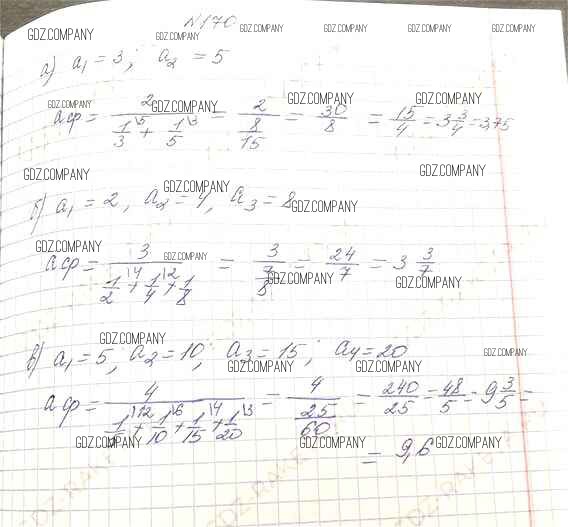 N170
GDZ.COMPANY GDZ.COMPANY GDZ.COMPANY GDZ.COMPANY GDZ.COMPANY
а) a₁ = 3; a₂ = 5
GDZ.COMPANY GDZ.COMPANY GDZ.COMPANY GDZ.COMPANY
aср = 2/(1/3\5 + 1/5\3) = 2/(8/15) = 30/8 = 15/4 = 3 3/4 = 3,75
GDZ.COMPANY GDZ.COMPANY GDZ.COMPANY
б) a₁ = 2, a₂ = 4, a₃ = 8
GDZ.COMPANY
GDZ.COMPANY GDZ.COMPANY
aср = 3/(1/2\4 + 1/4\2 + 1/8) = 3/(7/8) = 24/7 = 3 3/7
GDZ.COMPANY GDZ.COMPANY
GDZ.COMPANY GDZ.COMPANY
в) a₁ = 5; a₂ = 10; a₃ = 15; a₄ = 20
GDZ.COMPANY GDZ.COMPANY GDZ.COMPANY
aср = 4/(1/5\12 + 1/10\6 + 1/15\4 + 1/20\3) = 4/(25/60) = 240/25 = 48/5 = 9 3/5 =
GDZ.COMPANY GDZ.COMPANY GDZ.COMPANY
= 9,6